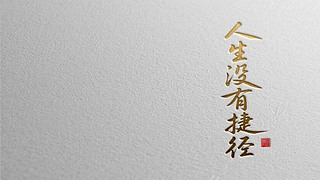 人生没有捷径